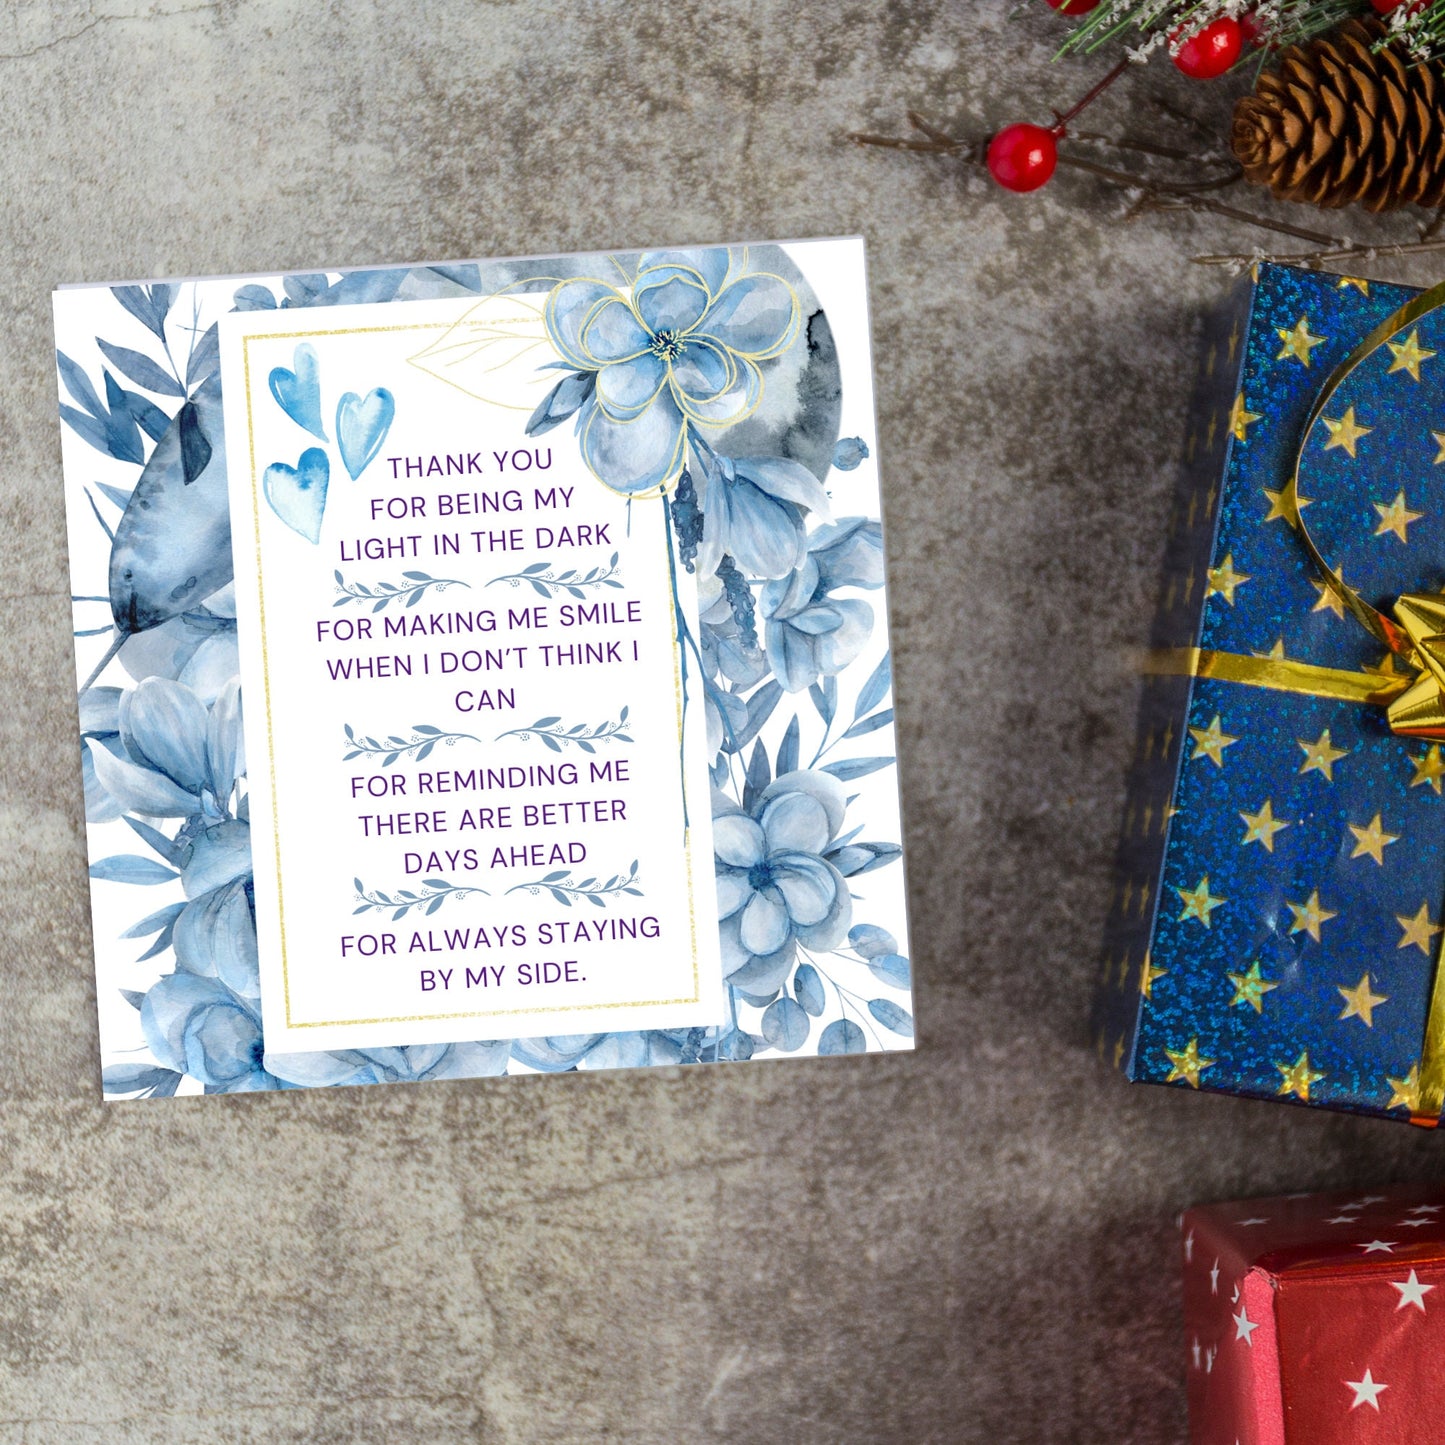 THANK YOU
FOR BEING MY
LIGHT IN THE DARK
FOR MAKING ME SMILE
WHEN I DON'T THINK I
CAN
FOR REMINDING ME
THERE ARE BETTER
DAYS AHEAD
FOR ALWAYS STAYING
BY MY SIDE.